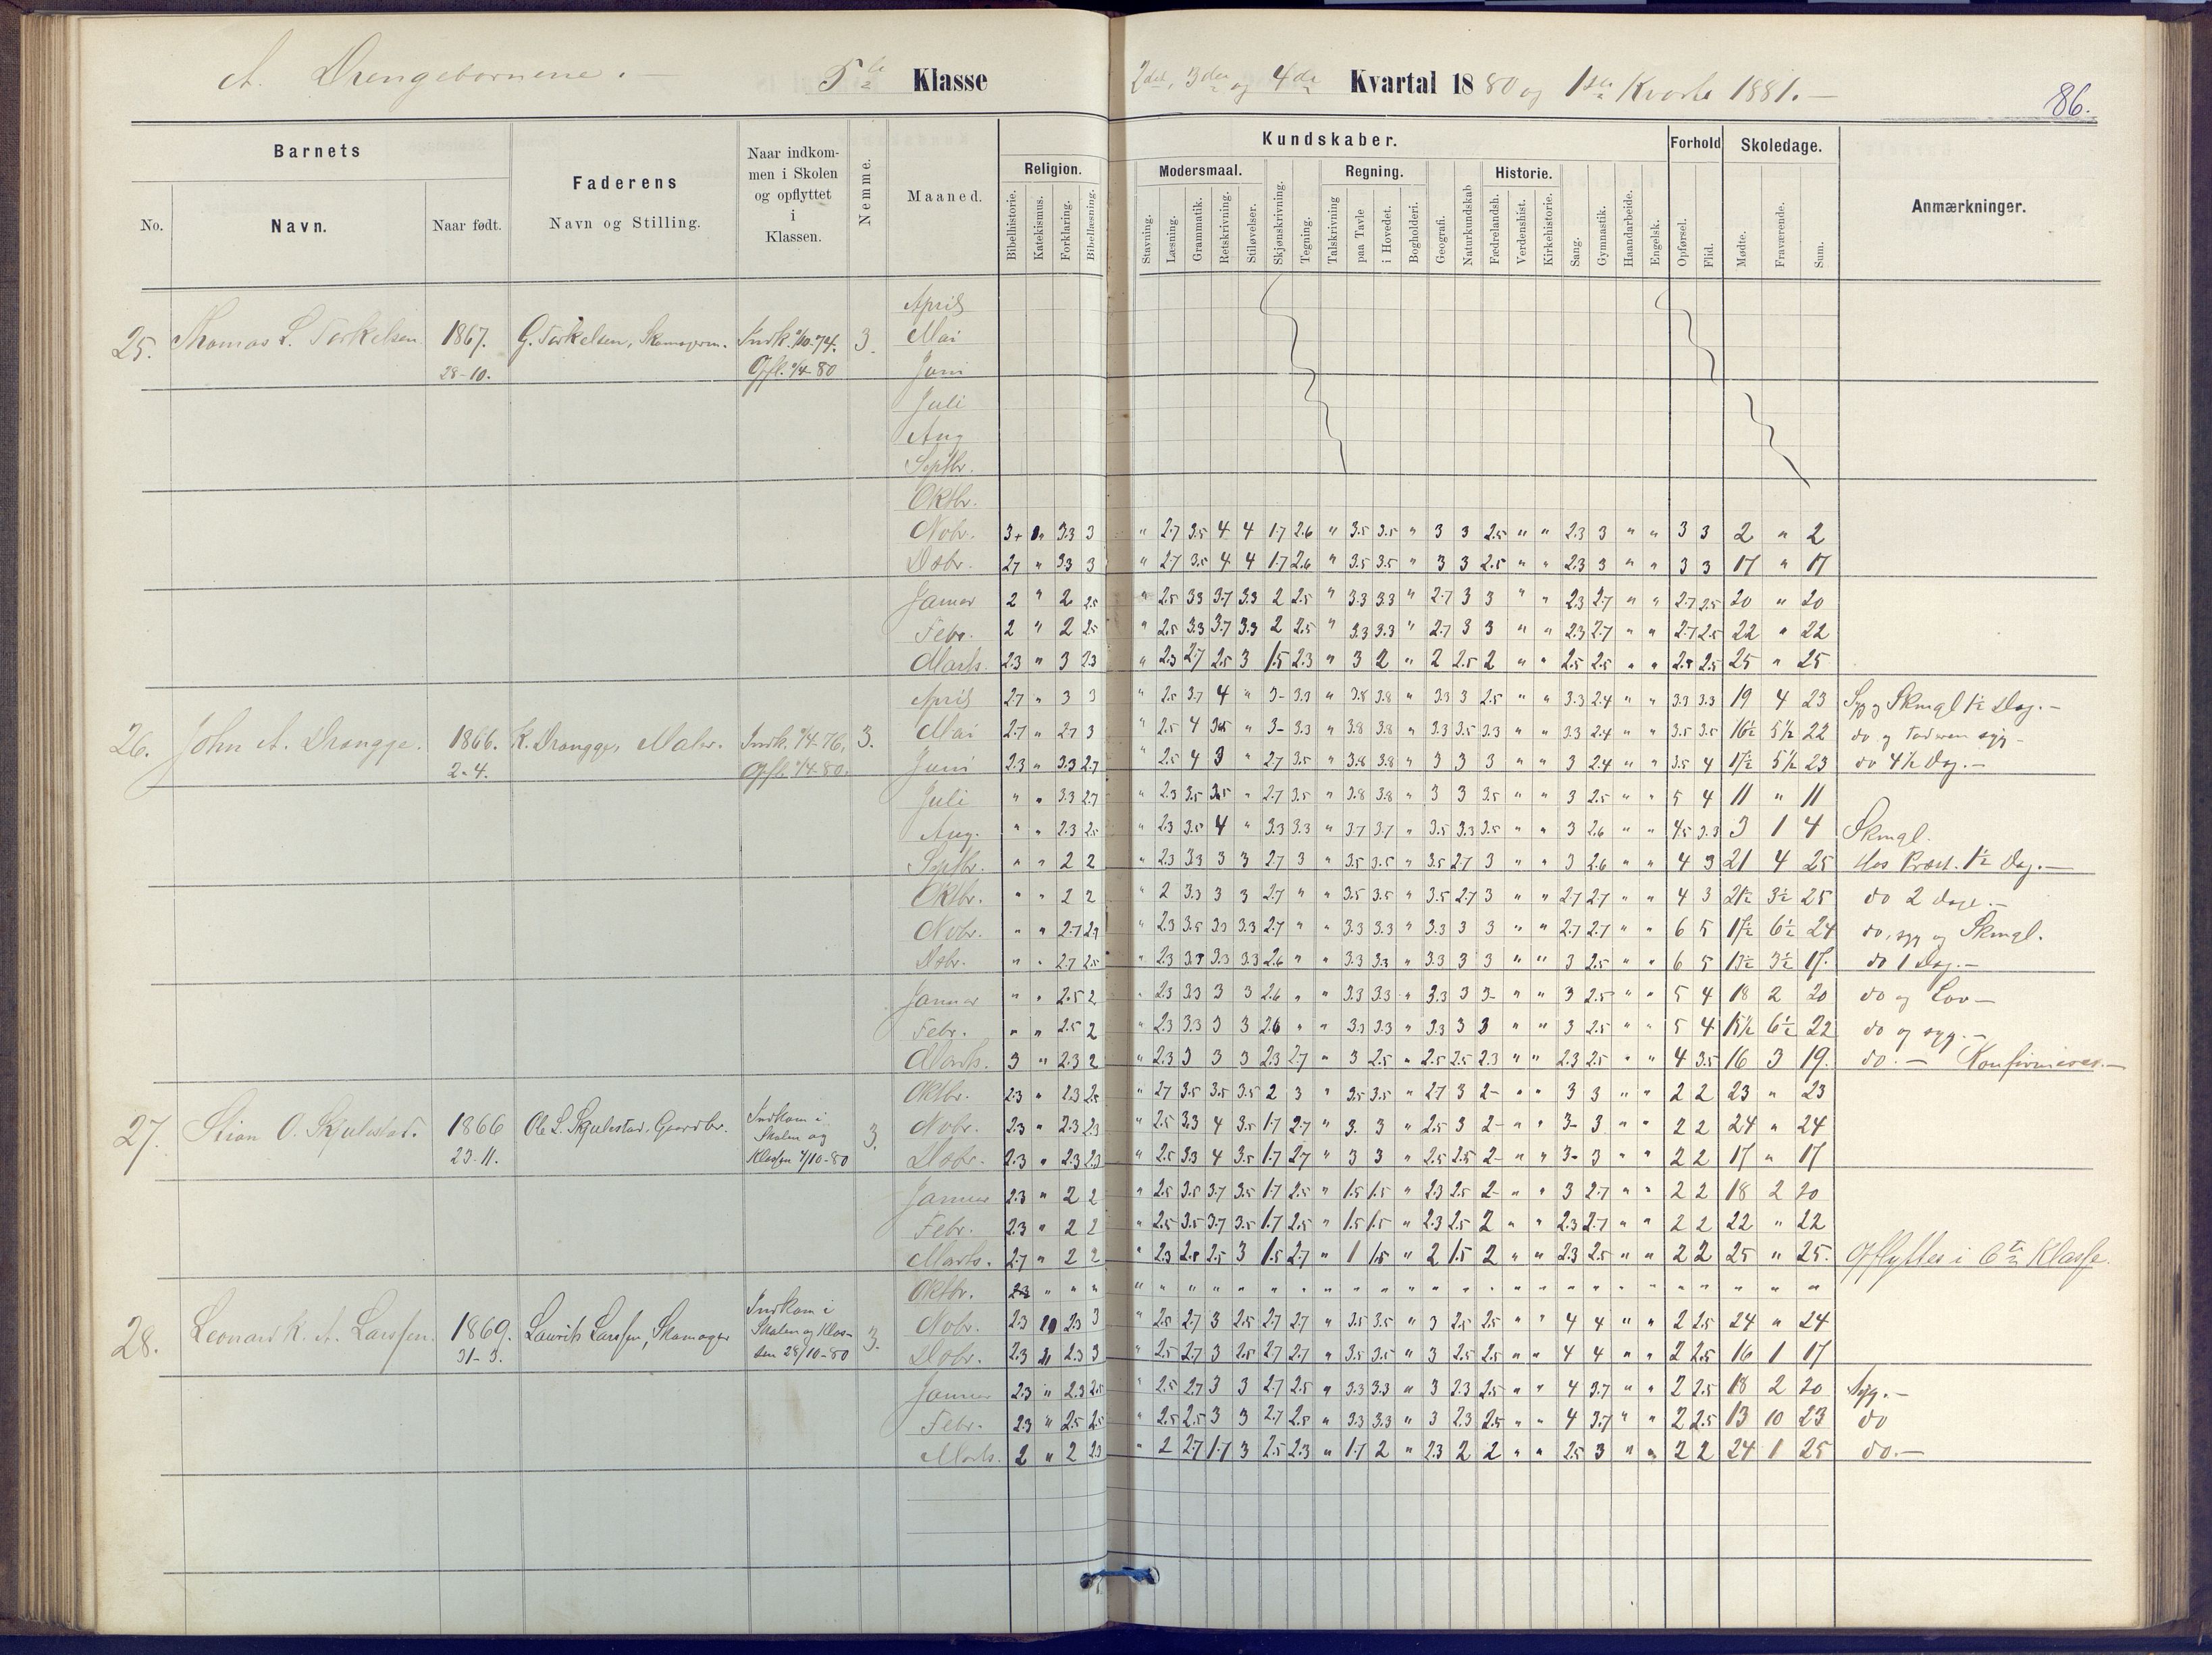 A. Drengebørnene. — 5te Klasse 2det, 3die og 4de Kvartal 1880 og 1ste Kvartl 1881. —
86.
Barnets
Faderens
Naar indkommen i Skolen og opflyttet i Klassen.
Nemme.
Maaned.
Kundskaber.
Forhold
Skoledage.
Anmærkninger.
Religion.
Modersmaal.
Regning.
Historie.
No.
Navn.
Naar født.
Navn og Stilling.
Bibelhistorie. Katekismus. Forklaring. Bibellæsning.
Stavning. Læsning. Grammatik. Retskrivning. Stiløvelser. Skjønskrivning. Tegning. Talskrivning paa Tavle i Hovedet. Bogholderi. Geografi. Naturkundskab Fædrelandsh. Verdenshist. Kirkehistorie. Sang. Gymnastik. Haandarbeide. Engelsk. Opførsel. Flid. Mødte. Fraværende. Sum.
April
25. Thomas L. Terkelsen. 1867. G. Terkelsen, Skomagerm. 3. Mai
28-10. Opfl. 1/4 80 Juni
Juli
Aug
Septbr.
Oktbr.
Nobr. 3+ " 3.3 3 " 2.7 3.5 4 4 1.7 2.6 " 3.5 3.5 " 3 3 2.5 " " 2.3 3 " " 3 3 2 " 2
Dsbr. 2.7 " 3.3 3 " 2.7 3.5 4 4 1.7 2.6 " 3.5 3.5 " 3 3 2.5 " " 2.3 3 " " 3 3 17 " 17
Januar 2 " 2 2.5 " 2.5 3.3 3.7 3.3 2 2.5 " 3.3 3.3 " 2.7 3 3 " " 2.3 2.7 " " 2.7 2.5 20 " 20
Febr. 2 " 2 2.5 " 2.5 3.3 3.7 3.3 2 2.5 " 3.3 3.3 " 2.7 3 3 " " 2.3 2.7 " " 2.7 2.5 22 " 22
Marts. 2.3 " 3 2.3 " 2.3 2.7 2.5 3 1.5 2.3 " 3 2 " 2 2.5 2 " " 2.5 2.5 " " 2.5 2.5 25 " 25
April 2.7 " 3 3 " 2.5 3.7 4 " 3- 3.3 " 3.8 3.8 " 3.3 3 2.5 " " 3.3 2.4 " " 3.3 3.3 19 4 23 Syg og Skmgl 1½ Dag. —
26. John A. Drangge. 1866. K. Drangge, Maler. Indk. 1/4-76, 3. Mai 2.7 " 2.7 3 " 2.5 4 3.5 " 3- 3.3 " 3.8 3.8 " 3.3 3.5 3.3 " " 3.3 2.4 " " 3.5 3.5 16½ 5½ 22 do og syg —
2-4. Opfl. 1/4-80. Juni 2.3 " 3.3 2.7 " 2.5 4 3 " 2.7 3.5 " 3.8 3.8 " 3 3 3 " " 3 2.4 " " 3.5 4 17½ 5½ 23 do 4½ Dag. —
Juli " " 3.3 2.7 " 2.3 3.5 3.5 " 2.7 3.5 " 3.8 3.8 " 3 3 3.5 " " 3 2.5 " " 5 4 11 " 11
Aug. " " 2.3 2.5 " 2.3 3.5 4 " 3.3 3.3 " 3.7 3.7 " 3.5 3.3 3.5 " " 3 2.6 " " 4.5 3.3 3 1 4 Skmgl.
Septbr. " " 2 2 " 2.3 3.3 3 3 2.7 3 " 3.5 3.5 " 3.5 2.7 3 " " 3 2.6 " " 4 3 21 4 25 Hos Præst. 1½ Dag. —
Oktbr. " " 2 2 " 2 3.3 3 3 2.7 " " 3.5 3.5 " 3.5 2.7 3 " " 2.7 2.7 " " 4 3 21½ 3½ 25 do 2 Dage. —
Nobr. " " 2.7 2.7 " 2.3 3.5 3.3 3.3 2.7 " " 3.3 3.3 " 3.3 3 3 " " 2.7 2.7 " " 6 5 17½ 6½ 24 do, syg og Skmgl.
Dsbr. " " 2.7 2.5 " 2.3 3.3 3.3 3.3 2.6 " " 3.3 3.3 " 3.3 3 3 " " 3 2.5 " " 6 5 13½ 3½ 17. do 1 Dag. —
Januar " " 2.5 2 " 2.3 3.3 3 3 2.6 " " 3.3 3.3 " 3.3 3 3- " " 3 2.5 " " 5 4 18 2 20 do og Lov —
Febr. " " 2.5 2 " 2.3 3.3 3 3 2.6 " " 3.3 3.3 " 3.3 3 3 " " 3 2.5 " " 5 4 15½ 6½ 22 do og syg. —
Marts. 3 " 2.3 2 " 2.3 3 3 3 2.3 2.7 " 3 2.5 " 2.5 2.5 2.3 " " 2.3 2.5 " " 4 3.5 16 3 19. do. — Konfirmeres. —
Oktbr. 2.3 " 2.3 2.5 " 2.7 3.5 3.5 3.5 2 3 " 3.5 3.5 " 2.7 3 2- " " 3 3 " " 2 2 23 " 23
27. Stian O. Skjulestad. 1866 Ole L. Skjulestad, Gaardbr. Indkom i Skolen og Klassen 4/10-80 3. Nobr. 2.3 " 2.3 2.3 " 2.5 3.3 4 3.5 1.7 2.7 " 3. 3 " 2.5 3 2- " " 3- 3 " " 2 2 24 " 24
23-11. Dsbr. 2.3 " 2.3 2.3 " 2.5 3.3 4 3.5 1.7 2.7 " 3 3 " 2.5 2.5 2- " " 3- 3 " " 2 2 17 " 17
Januar 2.3 " 2 2 " 2.5 3.5 3.7 3.5 1.7 2.5 " 1.5 1.5 " 2.3 2.5 2- " " 3 2.7 " " 2 2 18 2 20
Febr. 2.3 " 2 2 " 2.5 3.5 3.7 3.5 1.7 2.5 " 1.5 1.5 " 2.3 2.5 2 " " 2.3 2.7 " " 2 2 22 " 22
Marts. 2.7 " 2 2 " 2.3 2.5 2.5 3 1.5 2.7 " 1 1.5 " 2 1.5 2 " " 2.3 2.5 " " 2 2 25 " 25. Opflyttes i 6te Klasse.
Oktbr. " " " " " " " " " " " " " " " " " " " " " " " " " " " "
28. Leonard K. A. Larssen. 1869. Laurits Larssen, Skomager Indkom i Skolen og Klassen 28/10-80 3. Nobr. 2.3 2.3 3 " 2.5 2.7 3 2.5 2.7 2.7 " 3.5 3.5 " 3 2.5 2.5 " " 4 4 " " 2 2.5 24 " 24
31-3. Dsbr. 2.3 " 2.3 3 " 2.5 2.7 3 2.5 2.7 2.7 " 3.5 3.5 " 3 2.5 2.5 " " 4 4 " " 2 2.5 16 1 17
Januar 2.3 " 2.3 2.5 " 2.5 2.7 3 3 2.7 2.5 " 3.3 3.3 " 3 2.3 2.5 " " 4 3.7 " " 2 2.5 18 2 20 Syg. —
Febr. 2.3 " 2.5 2.5 " 2.5 2.5 3 3 2.7 2.5 " 3.3 3.3 " 3 2.3 2.5 " " 4 3.7 " " 2 2.5 13 10 23 do
Marts. 2 " 2 2.3 " 2 2.7 1.7 3 2.5 2.3 " 1.7 2 " 2.3 2 2 " " 2.5 3 " " 2 2 24 1 25 do. —